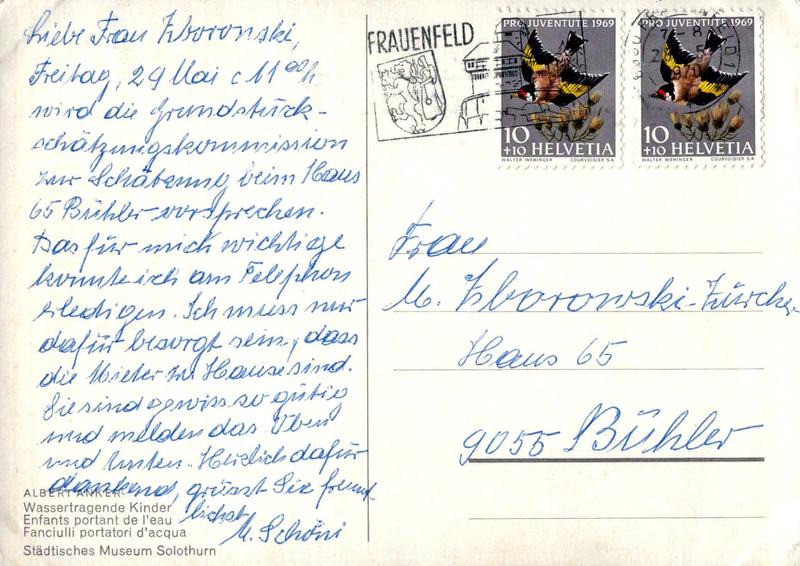 Liebe Frau Zboronski,
Freitag, 29 Mai c 11 00 h
wird die Grundstück-
schätzungskommission
zur Schätzung beim Haus
65 Bühler vorsprechen.
Das für mich wichtige
konnte ich am Telephon
erledigen. Ich muss nur
dafür besorgt sein, dass
die Mieter zu Hause sind.
Sie sind gewiss so gütig
und melden das Oben
und Unten. Herzlich dafür
dankend, grüsst Sie freund-
lichst
M. Schöni
ALBERT ANKER
Wassertragende Kinder
Enfants portant de l'eau
Fanciulli portatori d'acqua
Städtisches Museum Solothurn
FRAUENFELD
PRO JUVENTUTE 1969
10
+10 HELVETIA
WALTER WEHINGER COURVOISIER S.A.
PRO JUVENTUTE 1969
10
+10 HELVETIA
WALTER WEHINGER COURVOISIER S.A.
Frau
M. Zborowski-Zürcher
Haus 65
9055 Bühler